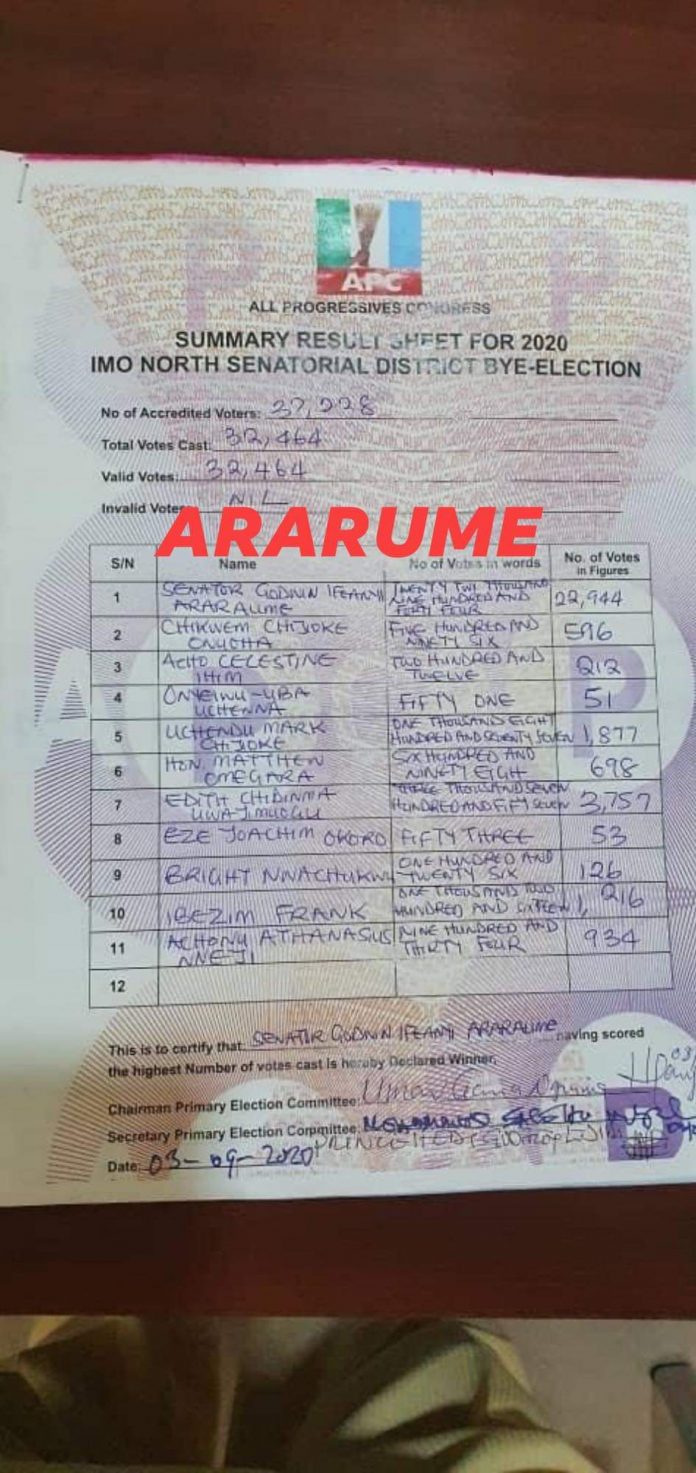 APC
ALL PROGRESSIVES CONGRESS
SUMMARY RESULT SHEET FOR 2020
IMO NORTH SENATORIAL DISTRICT BYE-ELECTION
No of Accredited Voters: 37,228
Total Votes Cast: 32,464
Valid Votes: 32,464
Invalid Votes NIL
ARARUME
S/N Name No of Votes in words No. of Votes in Figures
1 SENATOR GODWIN IFEANYI ARARAUME TWENTY TWO THOUSAND NINE HUNDRED AND FORTY FOUR 22,944
2 CHIKWEM CHIJOKE ONUOHA FIVE HUNDRED AND NINETY SIX 596
3 ACHO CELESTINE IHIM TWO HUNDRED AND TWELVE 212
4 ONYEIWU-UBA UCHENNA FIFTY ONE 51
5 UCHENDU MARK CHIJOKE ONE THOUSAND EIGHT HUNDRED AND SEVENTY SEVEN 1,877
6 HON. MATTHEW OMEGARA SIX HUNDRED AND NINETY EIGHT 698
7 EDITH CHIDINMA UWAJIMUOGU THREE THOUSAND SEVEN HUNDRED AND FIFTY SEVEN 3,757
8 EZE JOACHIM OKORO FIFTY THREE 53
9 BRIGHT NWACHUKWU ONE HUNDRED AND TWENTY SIX 126
10 IBEZIM FRANK ONE THOUSAND TWO HUNDRED AND SIXTEEN 1,216
11 ACHONU ATHANASUS NNEJI NINE HUNDRED AND THIRTY FOUR 934
12
This is to certify that SENATOR GODWIN IFEANYI ARARAUME having scored
the highest Number of votes cast is hereby Declared Winner,
Chairman Primary Election Committee:
Secretary Primary Election Committee:
Date: 03-09-2020